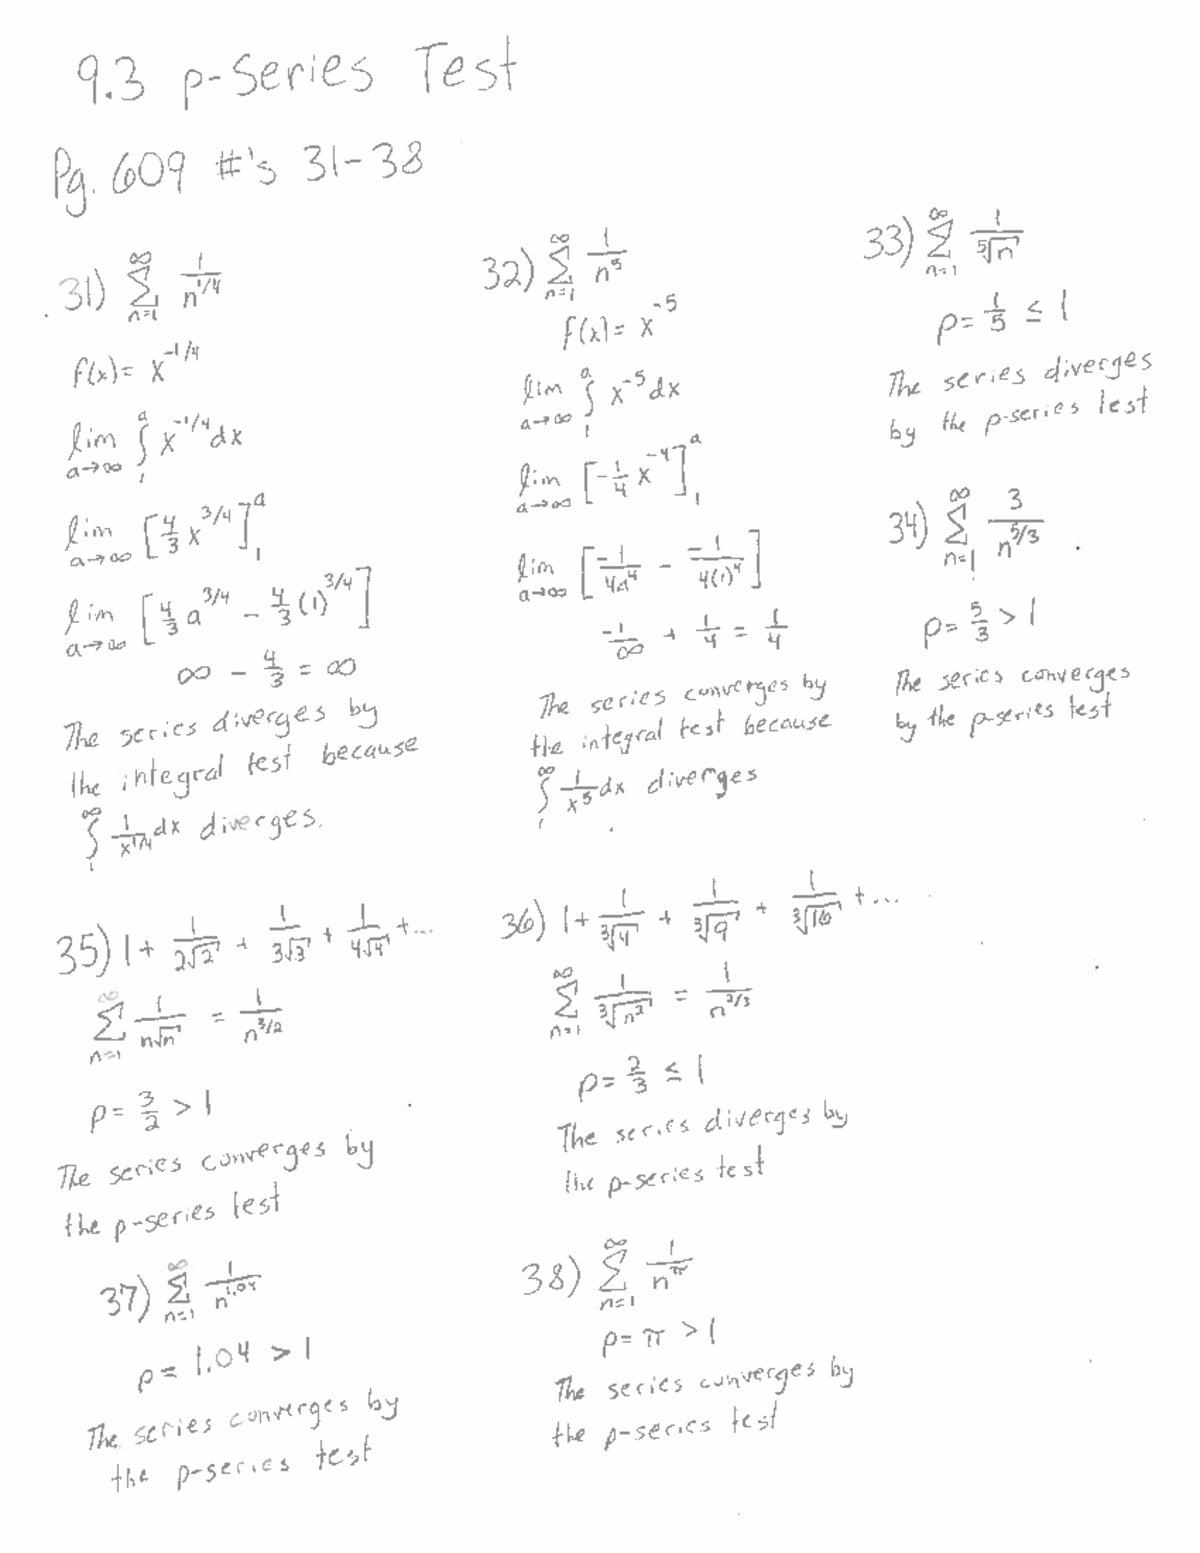 9.3 p-Series Test
Pg. 609 #'s 31-38
31) ∞∑n=1 1/n^(1/4)
f(x) = x^(-1/4)
lim a→∞ ∫₁^a x^(-1/4) dx
lim a→∞ [4/3 x^(3/4)]₁^a
lim a→∞ [4/3 a^(3/4) - 4/3 (1)^(3/4)]
∞ - 4/3 = ∞
The series diverges by
the integral test because
∫₁^∞ 1/x^(1/4) dx diverges.
32) ∞∑n=1 1/n^5
f(x) = x^(-5)
lim a→∞ ∫₁^a x^(-5) dx
lim a→∞ [-1/4 x^(-4)]₁^a
lim a→∞ [-1/4a^4 - -1/4(1)^4]
-1/∞ + 1/4 = 1/4
The series converges by
the integral test because
∫₁^∞ 1/x^5 dx diverges
33) ∞∑n=1 1/⁵√n
p = 1/5 ≤ 1
The series diverges
by the p-series test
34) ∞∑n=1 3/n^(5/3)
p = 5/3 > 1
The series converges
by the p-series test
35) 1 + 1/2√2 + 1/3√3 + 1/4√4 + ...
∞∑n=1 1/n√n = 1/n^(3/2)
p = 3/2 > 1
The series converges by
the p-series test
36) 1 + 1/³√4 + 1/³√9 + 1/³√16 + ...
∞∑n=1 1/³√n² = 1/n^(2/3)
p = 2/3 ≤ 1
The series diverges by
the p-series test
37) ∞∑n=1 1/n^1.04
p = 1.04 > 1
The series converges by
the p-series test
38) ∞∑n=1 1/n^π
p = π > 1
The series converges by
the p-series test